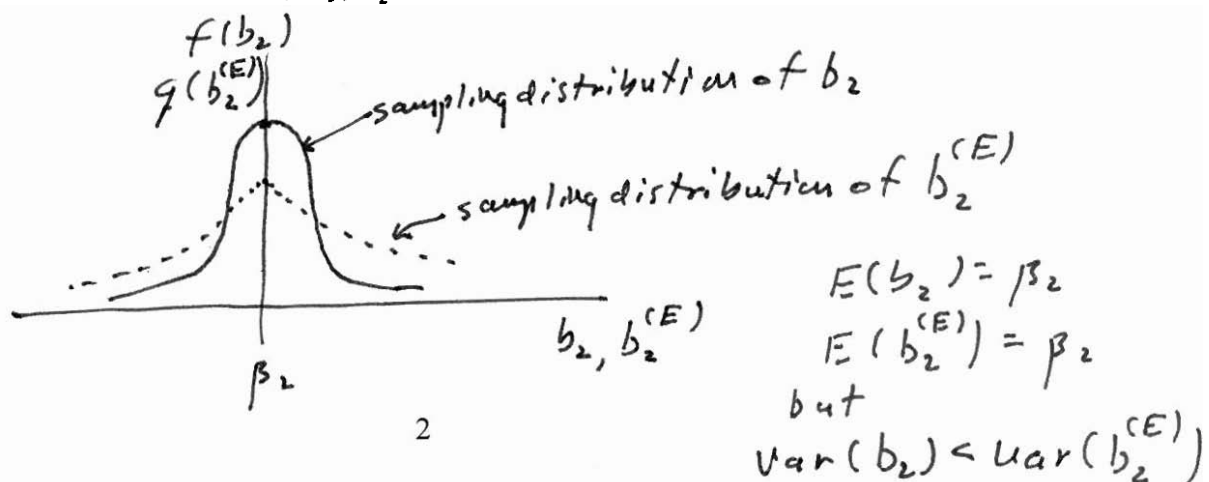 f(b₂)
q(b₂^(E))
sampling distribution of b₂
sampling distribution of b₂^(E)
E(b₂) = β₂
E(b₂^(E)) = β₂
but
var(b₂) < var(b₂^(E))
b₂, b₂^(E)
β₂
2